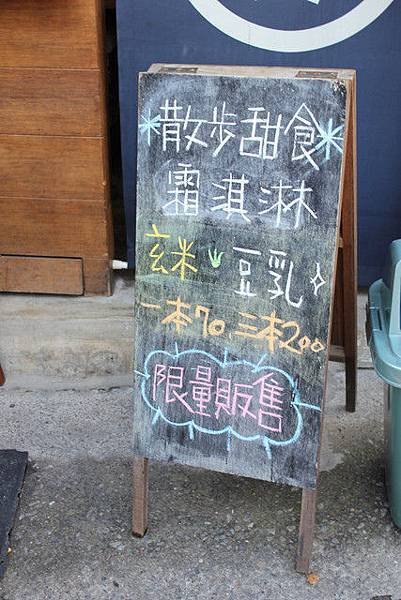 散步甜食
霜淇淋
玄米 豆乳
一本70、三本200
限量販售